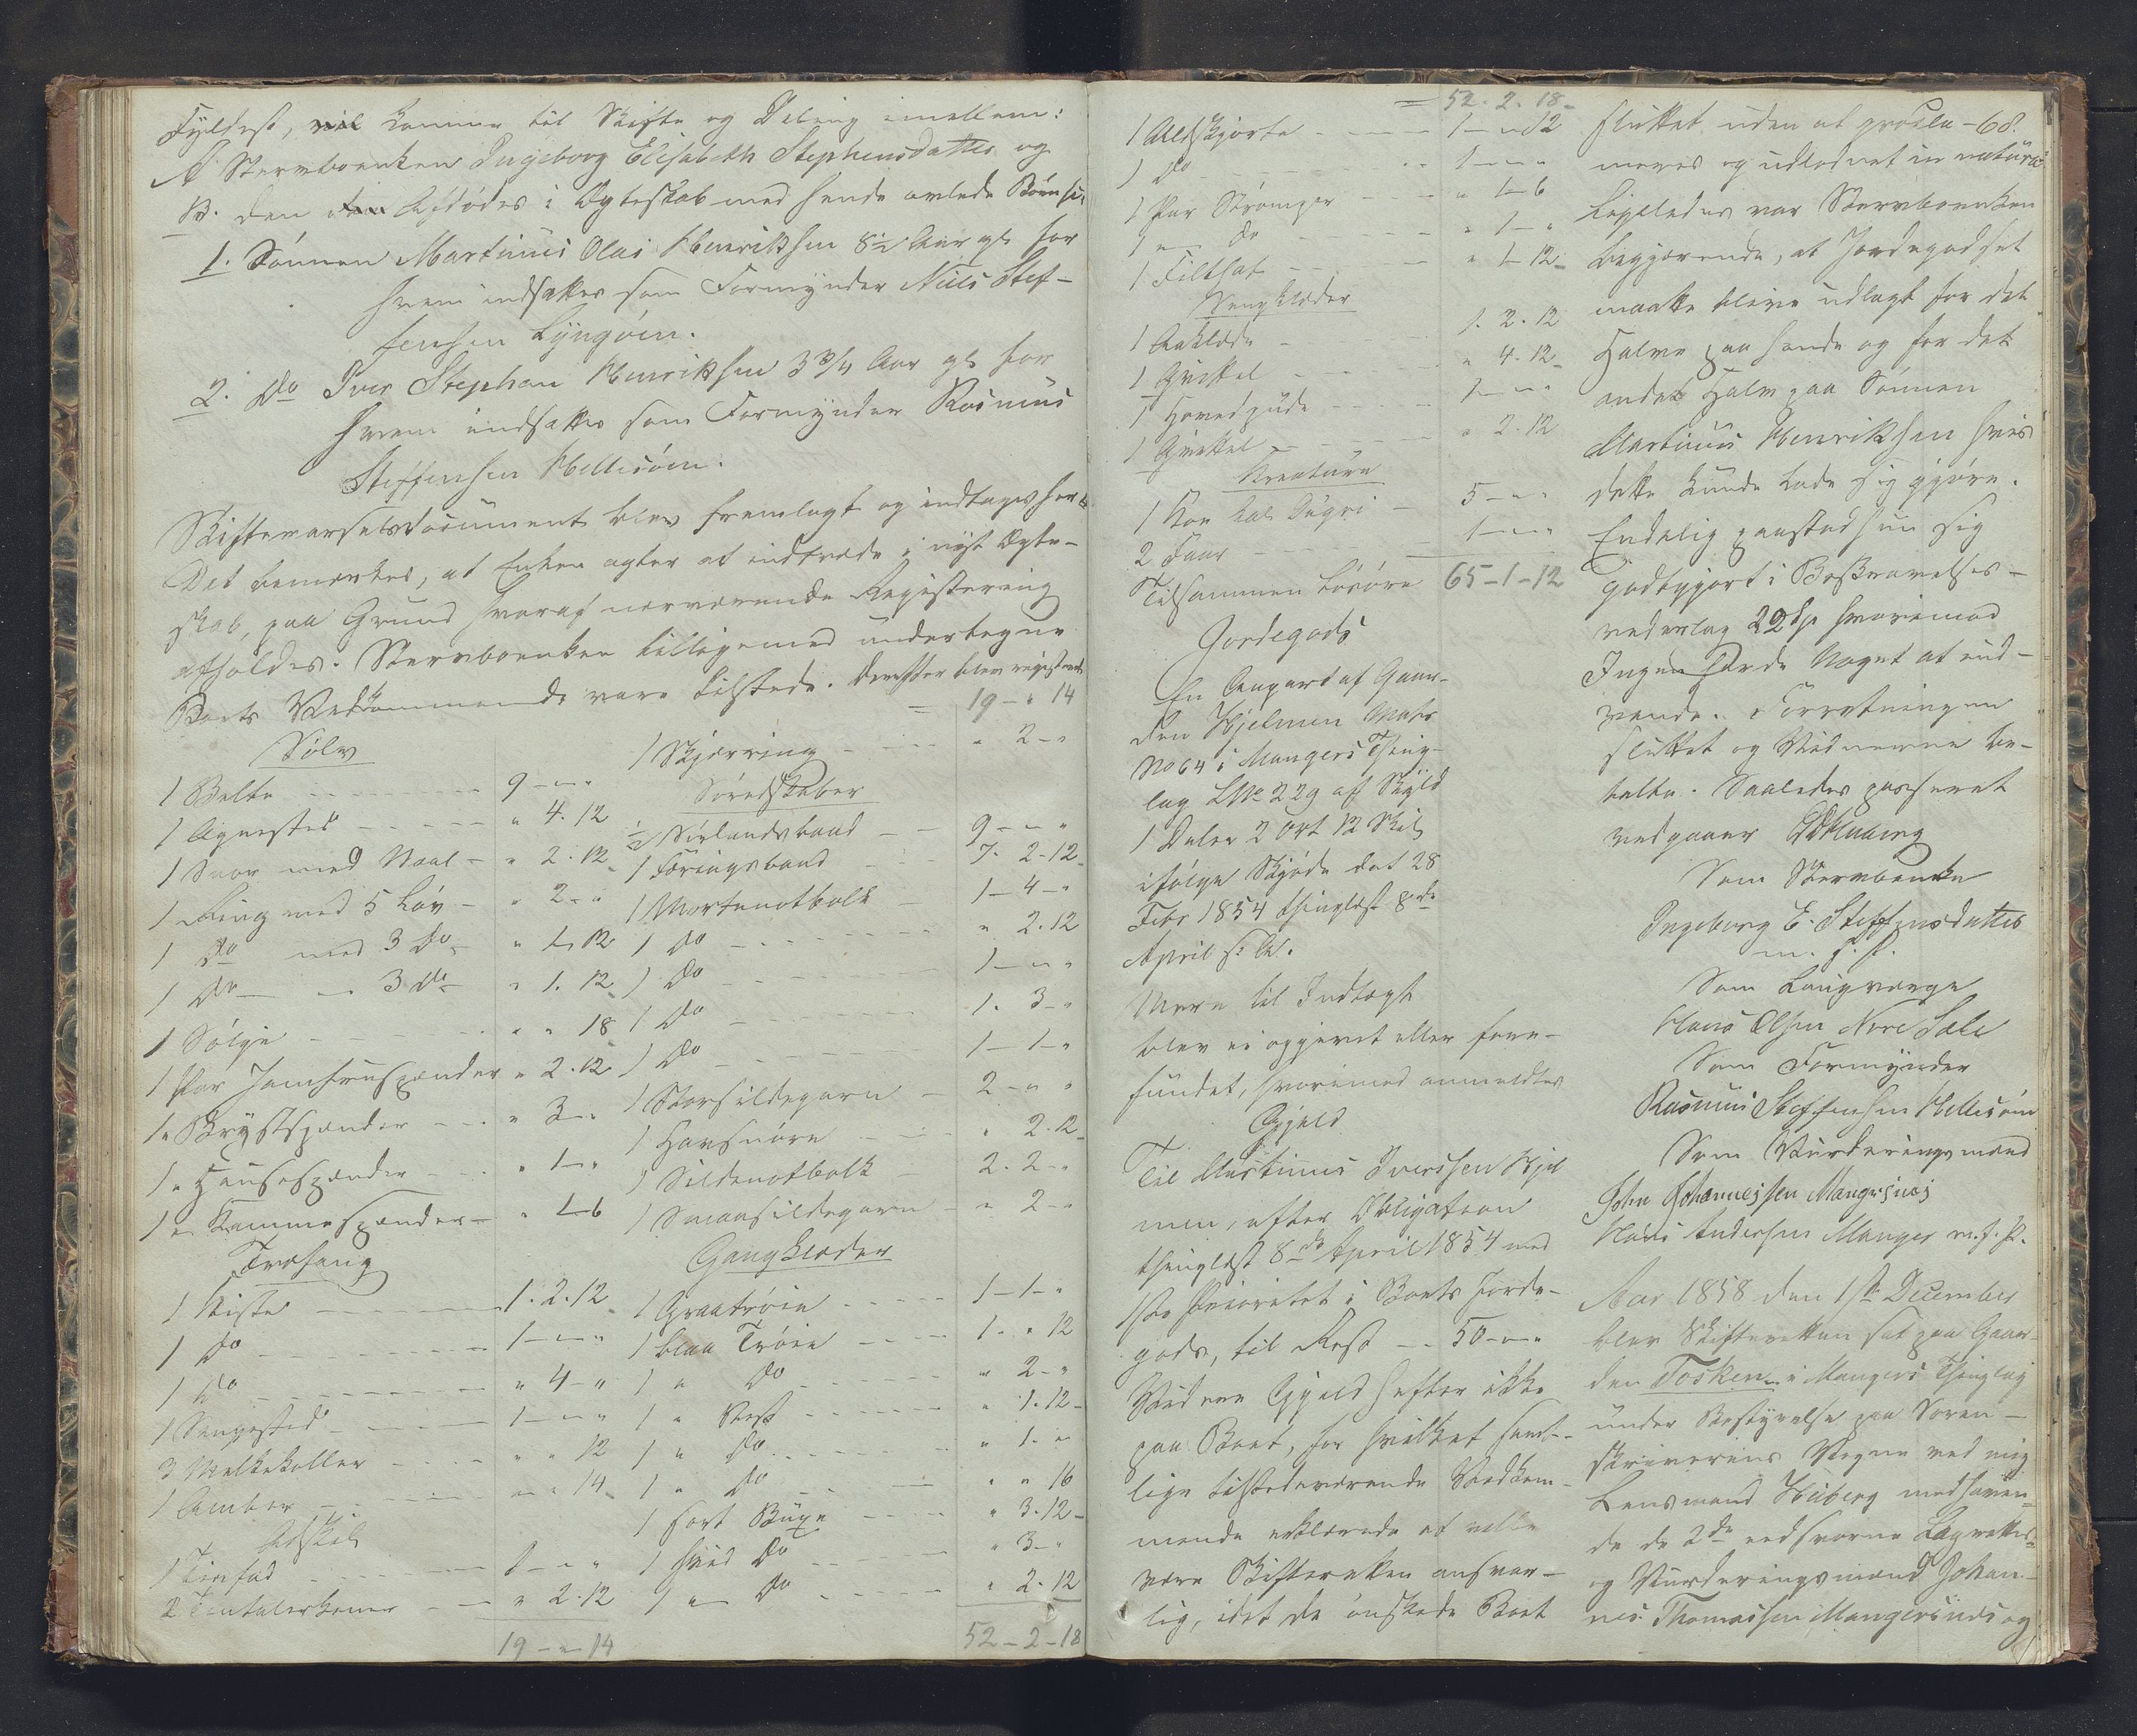 Fyldest, vil komme til Skifte og Deling imellem:
A Stervboenken Ingeborg Elisabeth Stephensdatter og
B. den Afdødes i Ægteskab med hende avlede Børn
1. Sønnen Martinus Olai Henriksen 8½ Aar gl. for
hvem indsattes som Formynder Nils Stef-
fensen Lyngøen.
2. Do Iver Stephan Henriksen 3 3/4 Aar gl. for
hvem indsattes som Formynder Rasmus
Steffensen Hellisöen.
Skiftevarselsdocument blev fremlagt og indtages her
Det bemærkes, at Enken agter at indtræde i nyt Ægte-
skab, paa Grund hvoraf nærværende Registering
afholdes. Stervboenken tilligemed undertegne
Boets Vedkommende vare tilstede. Derefter blev registeret
Sølv
1 Belte 9 - " - "
1 Agnestes " 4. 12
1 Snor med Naal " 2. 12
1 Ring med 5 Løv " 2 - "
1 Do med 3 Do " 1. 12
1 Do - " - 3 Do " 1. 12
1 Sølje " " 18
1 Par Jomfruspænder " 2. 12
1 " Brystspænder " 3 - "
1 " Halsespænder " 1 - "
1 " Kammespænder " 1 - 6
Træfang
1 Kiste 1. 2. 12
1 Do 1 - " - "
1 Do " 4 - "
1 Sengested 1 - " - "
3 Melkekoller " " 12
1 Ambar " " 14
1 Tinfad 1 - " - "
2 Tintalerkener " 2. 12
19 - " - 14
= 19 - " 14
1 Skjæring " 2 - "
Søredskaber
½ Sørlandsbaad 9 - " - "
1 Færingsbaad 7. 2 - 12
1 Mortenotbolk 1 - 4 - "
1 Do " 2. 12
1 Do 1 - " - "
1 Do 1. 3 - "
1 Do 1 - 1 - "
1 Storsildegarn 2 - " - "
1 Havsnøre " 2. 12
1 Sildenotbolk 2. 2 - "
1 Smaasildegarn " 2 - "
Gangklæder
1 Graatrøie 1 - 1 - "
1 blaa Trøie 1. " 12
1 " Do " 2 - "
1 " Vest " 1. 12
1 " Do " 1 - "
1 " Do " " 16
1 sort Buxe " 3. 12
1 hvid Do " 3 - "
1 " Do " 2. 12
52 - 2 - 18
= 52. 2. 18
1 Uldskjorte 1 - " 12
1 Do 1 - " - "
1 Par Strømper " 1 - 6
1 " Do " 1 - "
1 Filthat " 1 - 12
Sengklæder
1 Aaklæde 1. 2. 12
1 Qvittel " 4. 12
1 Hovedpude 1 - " - "
1 Qvittel " 2. 12
Kreature
1 Koe kal. Dugri 5 - " - "
2 Faar 1 - " - "
Tilsammen Løsøre 65 - 1 - 12
Jordegods
En Anpart af Gaar-
den Hjelmen Matr
No 64 i Mangers Thing-
lag LNo 229 af Skyld
1 Daler 2 Ort 12 Skil
ifølge Skjøde dat 28
Febr 1854 thinglæst 8de
April s. A.
Mere til Indtægt
blev ei opgivet eller fore-
fundet, hvorimod anmeldtes
Gjeld
Til Martinus Iverssen Hjel
men, efter Obligation
thinglæst 8de April 1854 med
1ste Prioritet i Boets Jorde-
gods, til Rest 50 - " - "
Videre Gjeld hefter ikke
paa Boet, for hvilket samt-
lige tilstedeværende Vedkom-
mende erklærede at ville
være Skifteretten ansvar-
lig, idet de ønskede Boet
sluttet uden at procla- 68.
meres og udloddet in natura
Ligeledes var Stervboenken
begjærende, at Jordegodset
maatte blive udlagt for det
Halve paa hende og for det
andet Halve paa Sønnen
Martinus Henriksen hvis
dette kunde lade sig gjøre.
Endelig paastod hun sig
godtgjort i Boskrævelses-
vederlag 22 hvorimod
Ingen havde Noget at ind-
vende. Forretningen
sluttet og Vidnerne be-
talte. Saaledes passeret
vedgaaer Heiberg
Som Stervboenke
Ingeborg E. Steffensdatter
m. f. P.
Som Laugværge
Hans Olsen Nore Sæle
Som Formynder
Rasmus Steffensen Hellisöen
Som Vurderingsmænd
John Johannessen Mangersnæs
Hans Andersen Manger m. f. P.
Aar 1858 den 1ste December
blev Skifteretten sat paa Gaar-
den Tosken i Mangers Thinglag
under Bestyrelse paa Soren-
skriverens Vegne ved mig
Lensmand Heiberg medhaven-
de de 2de eedsvorne Lagrettes-
og Vurderingsmænd Johan-
nes Thomassen Mangersnæs og